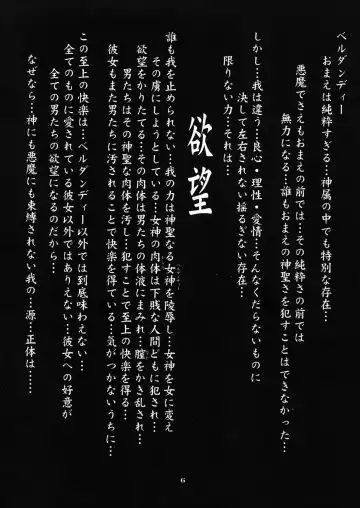 ベルダンディー
おまえは純粋すぎる…神属の中でも特別な存在…
悪魔でさえもおまえの前では…その純粋さの前では
無力になる…誰もおまえの神聖さを犯すことはできなかった…
しかし…我は違う…良心・理性・愛情…そんなくだらないものに
決して左右されない揺るぎない存在…
限りない力…それは…
欲望
誰も我を止められない…我の力は神聖なる女神を陵辱し…女神を変え
その虜にしようとしている…女神の肉体は下賎な人間どもに犯され…
欲望をかりたてる…その肉体は男たちの体液にまみれ…膣をかき乱され…
男たちはその神聖な肉体を汚し…犯すことで至上の快楽を得る…
彼女もまた男たちに汚されることで快楽を得ている…気がつかないうちに…
この至上の快楽は…ベルダンディー以外では到底味わえない…
全てのものに愛されている彼女以外ではありえない…彼女への好意が
全ての男たちの欲望になるのだから…
なぜなら…神にも悪魔にも束縛されない我の…源…正体は……
6